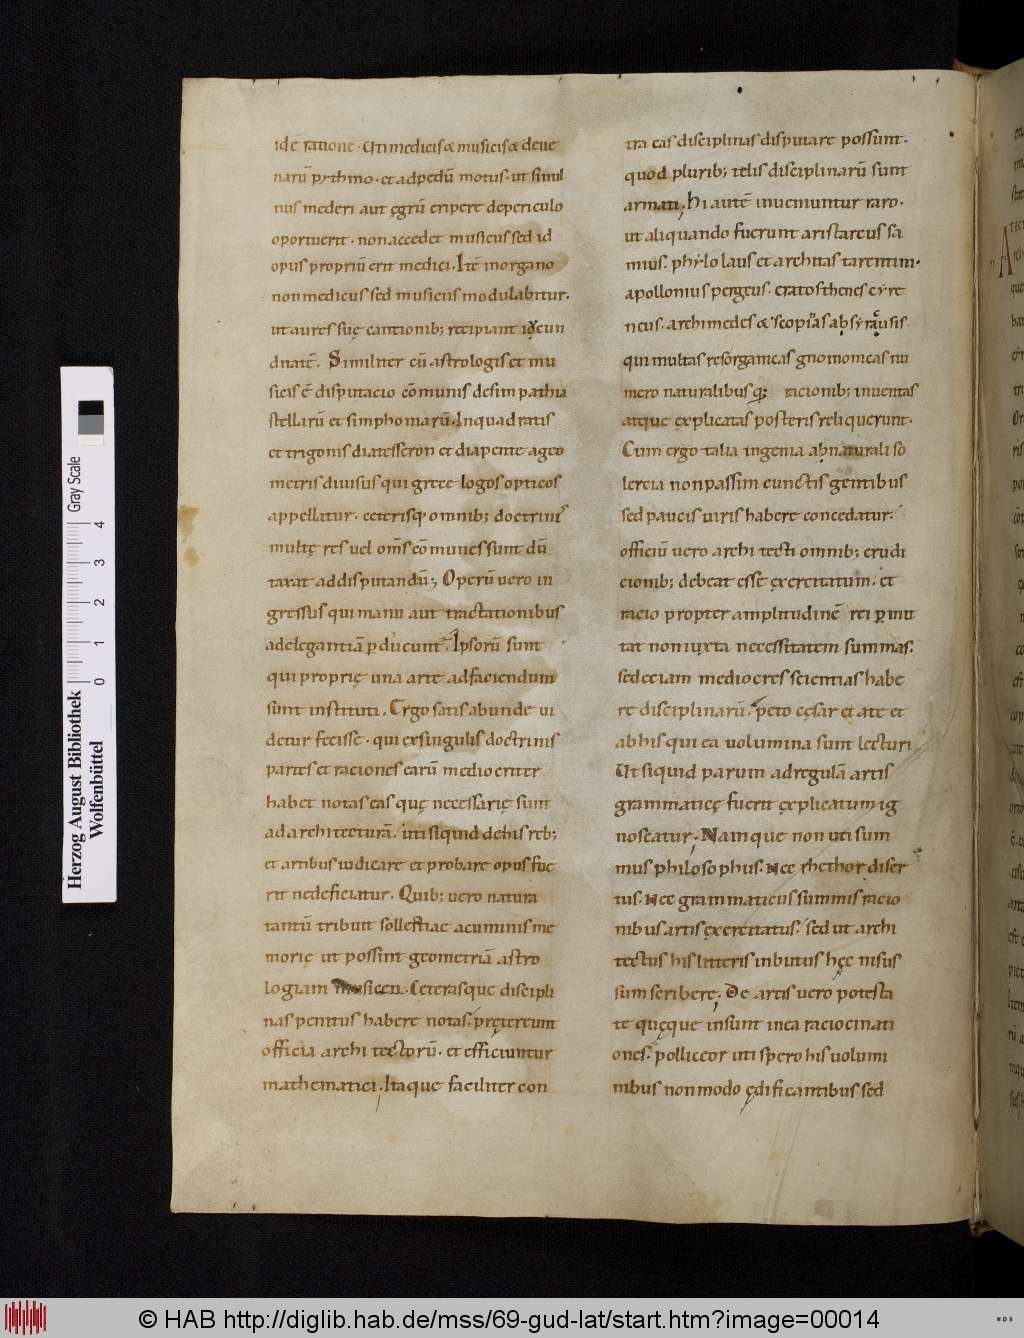 idē ratione. Uti medicis & musicis & de uene
narū rythmo. et ad pedū motus. ut si uul
nus mederi aut ęgrū eripere de periculo
oportuerit. non accedet musicus sed id
opus propriū erit medici. Itē in organo
non medicus sed musicus modulabitur.
ut aures suę cantionib; recipiant iocun
ditatē. Similiter cū astrologis et mu
sicis ē disputacio cōmunis de simpathia
stellarū et simphoniarū. In quadratis
et trigonis diatesseron et diapente ageo
metris diuisus qui grece logos opticos
appellatur. ceterisq omnib; doctrinis
multę res uel om̄s cōmunes sunt dū
taxat ad disputandū; Operū uero in
gressus qui manu aut tractationibus
ad elegantiā ꝑducunt. Ipsorū sunt
qui proprię una arte ad faciendum
sunt instituti. Ergo satis abunde ui
detur fecisse. qui ex singulis doctrinis
partes et raciones earū mediocriter
habet notas eas quę necessarię sunt
ad architecturā. uti siquid de his reb;
et artibus iudicare et probare opus fue
rit ne deficiatur. Quib; uero natura
tantū tribuit sollestiae acuminis me
morię ut possint geometriā astro
logiam musicen. Ceterasque discipli
nas penitus habere notas. prętereunt
officia architectorū. et efficiuntur
mathematici. Itaque faciliter con
tra eas disciplinas disputare possunt.
quod plurib; telis disciplinarū sunt
armati. Hi autē inueniuntur raro.
ut aliquando fuerunt aristarcus sa
mius. phylolaus et architas tarentini.
apollonius pergeus. eratosthenes cyre
neus. archimedes & scopinas ab syracusis.
qui multas res organicas gnomonicas nu
mero naturalibusq; racionib; inuentas
atque explicatas posteris reliquerunt.
Cum ergo talia ingenia ab naturali so
lercia non passim cunctis gentibus
sed paucis uiris habere concedatur.
officiū uero architecti omnib; erudi
cionib; debeat esse exercitatum. et
racio propter amplitudinē rei ꝑmit
tat non iuxta necessitatem summas.
sed eciam mediocres scientias habe
re disciplinarū. peto cęsar et a te et
ab his qui ea uolumina sunt lecturi
Ut siquid parum ad regulā artis
grammaticę fuerit explicatum ig
noscatur. Namque non uti sum
mus philosophus. Nec rhethor diser
tus. Nec grammaticus summis racio
nibus artis exercitatus. sed ut archi
tectus his litteris inbutus hęc nisus
sum scribere. De artis uero potesta
te quęque insunt in ea raciocinati
ones. polliceor uti spero his uolumi
nibus non modo ędificantibus sed
Herzog August Bibliothek
Wolfenbüttel
0 1 2 3 4
Gray Scale
© HAB http://diglib.hab.de/mss/69-gud-lat/start.htm?image=00014